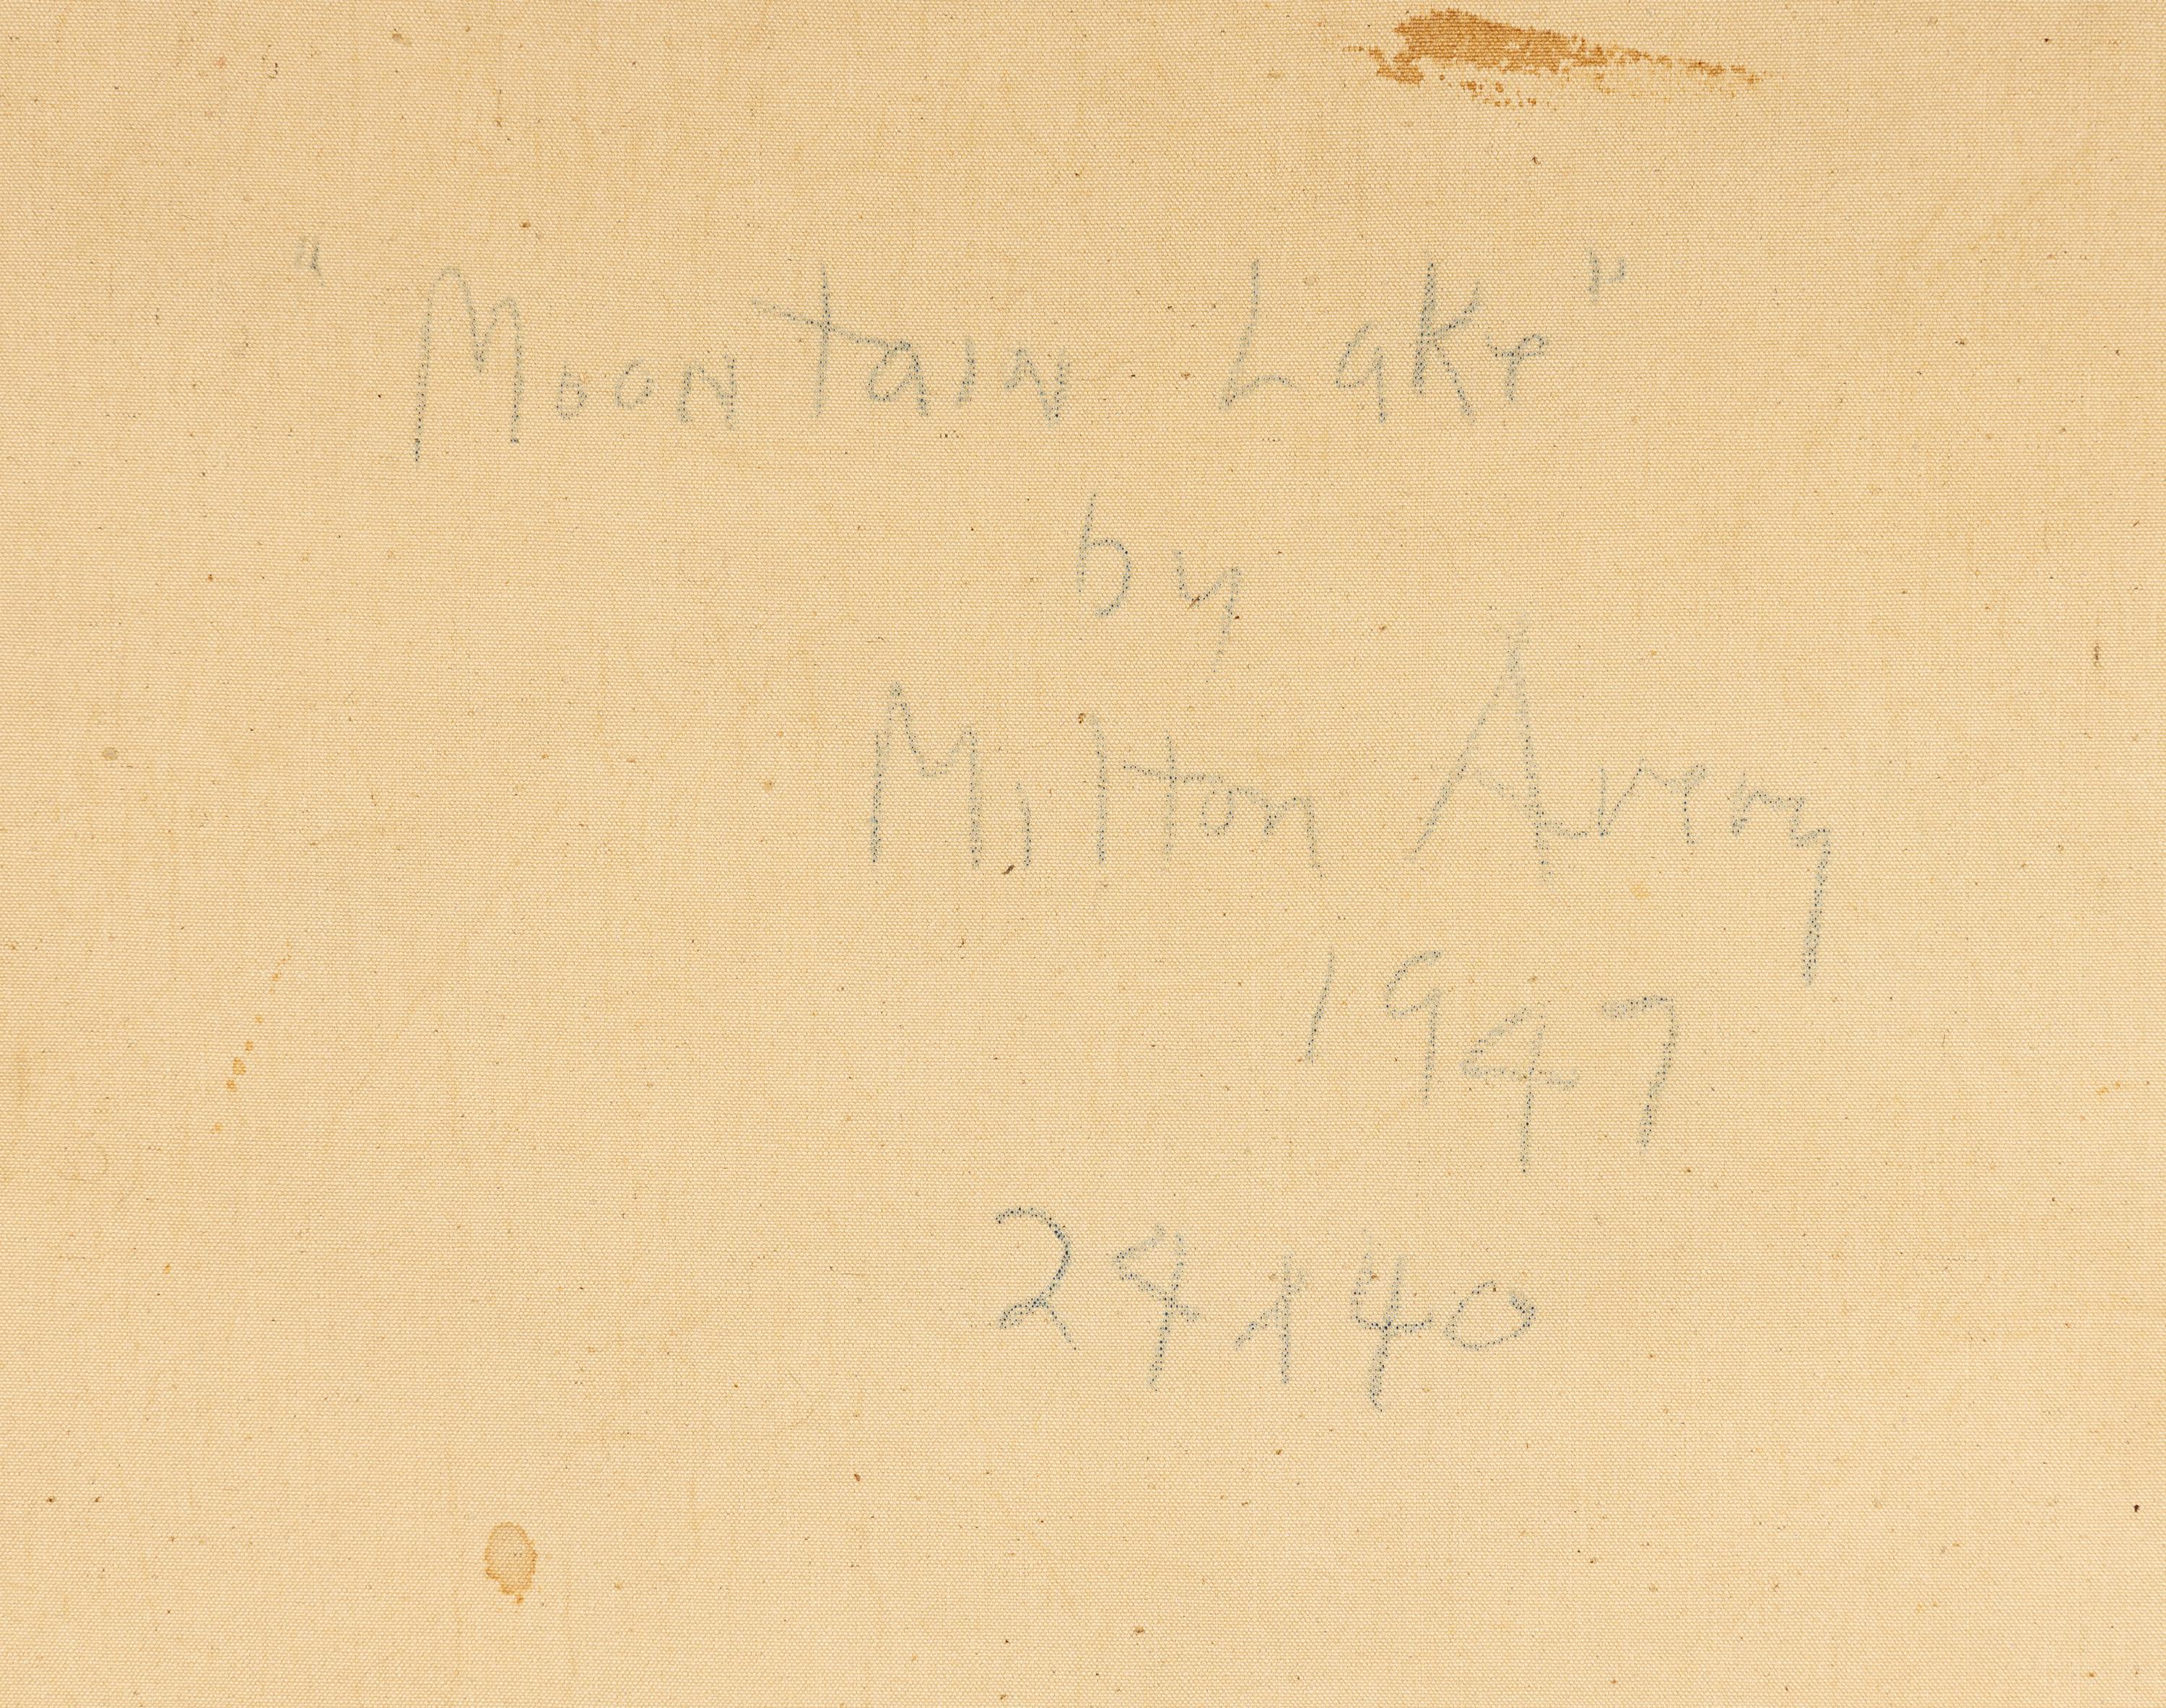 "Mountain Lake"
by
Milton Avery
1947
24 x 40